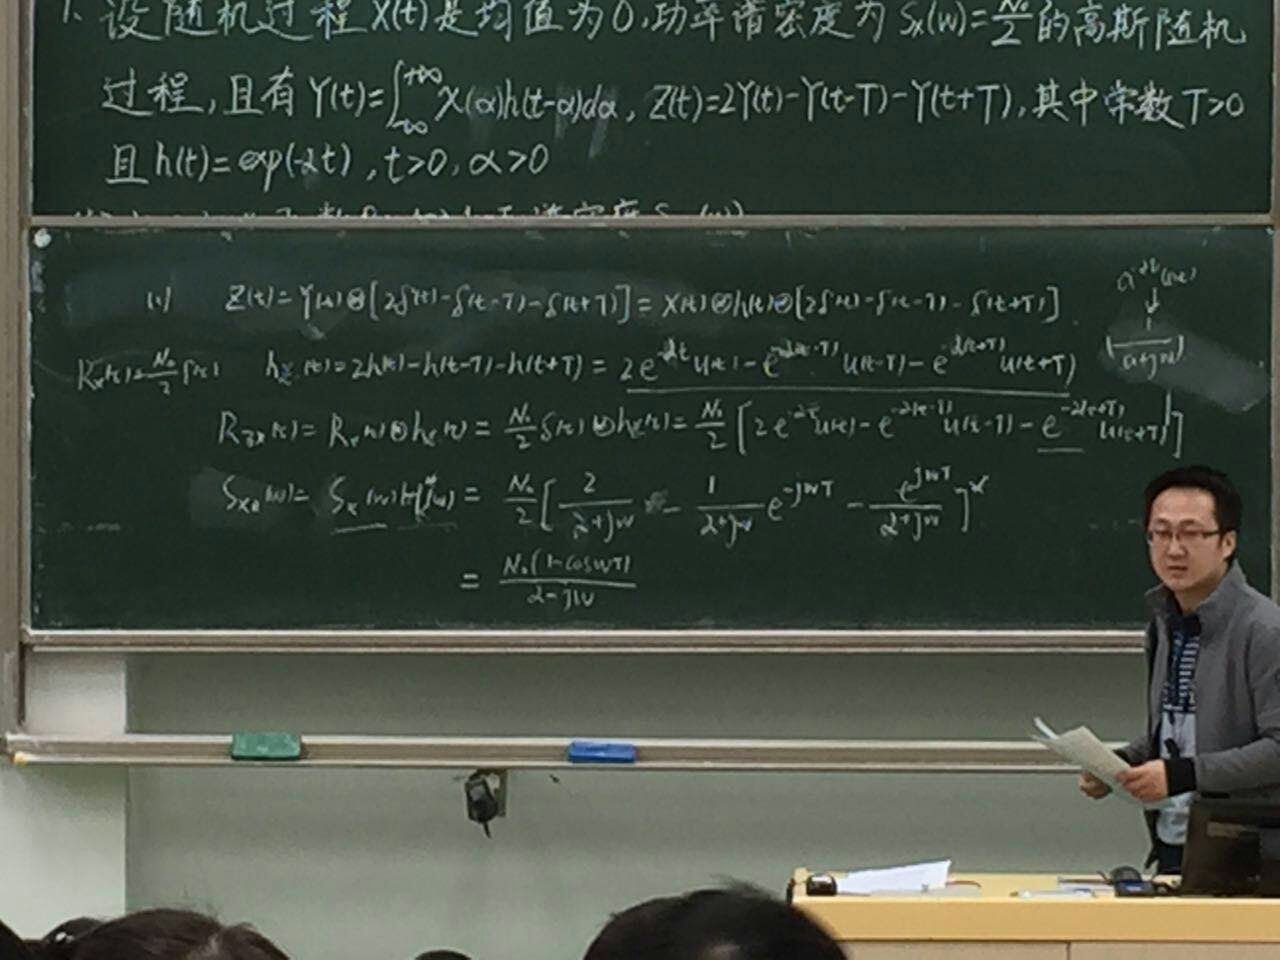 1. 设随机过程X(t)是均值为0,功率谱密度为Sx(w)=N₀/2的高斯随机
过程,且有Y(t)=∫_{-∞}^{+∞}X(α)h(t-α)dα, Z(t)=2Y(t)-Y(t-T)-Y(t+T),其中常数T>0
且h(t)=exp(-αt), t>0, α>0
(1) Z(t)=Y(t)⊗[2δ(t)-δ(t-T)-δ(t+T)]=X(t)⊗h(t)⊗[2δ(t)-δ(t-T)-δ(t+T)]
e^{-αt}u(t)
↓
1/(α+jw)
Rx(τ)=N₀/2 δ(τ) h_z(t)=2h(t)-h(t-T)-h(t+T)=2e^{-αt}u(t)-e^{-α(t-T)}u(t-T)-e^{-α(t+T)}u(t+T)
R_{zx}(τ)=Rx(τ)⊗h_z(τ)=N₀/2 δ(τ)⊗h_z(τ)=N₀/2[2e^{-ατ}u(τ)-e^{-α(τ-T)}u(τ-T)-e^{-α(τ+T)}u(τ+T)]
S_{xz}(w)=Sx(w)H*(jw)=N₀/2[2/(α+jw) - 1/(α+jw) e^{-jwT} - e^{jwT}/(α+jw)]*
=N₀(1-coswT)/(α-jw)